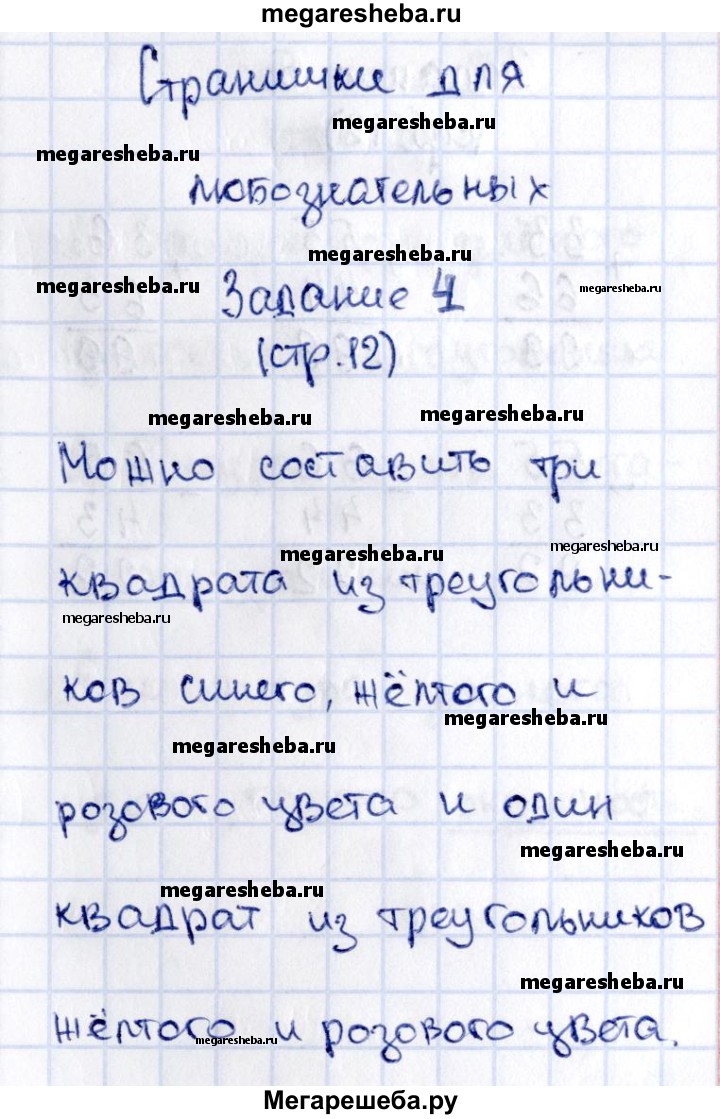 megaresheba.ru
Странички для
megaresheba.ru
megaresheba.ru
любознательных
megaresheba.ru
megaresheba.ru
megaresheba.ru
Задание 4
(стр.12)
megaresheba.ru
megaresheba.ru
Можно составить три
megaresheba.ru
megaresheba.ru
квадрата из треугольни-
megaresheba.ru
ков синего, жёлтого и
megaresheba.ru
megaresheba.ru
розового цвета и один
megaresheba.ru
megaresheba.ru
квадрат из треугольников
megaresheba.ru
жёлтого и розового цвета.
megaresheba.ru
Мегарешеба.ру